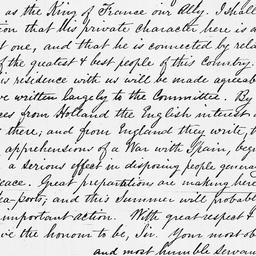 as the King of France our Ally. I shall
ion that his private character here is a
t one, and that he is connected by rela
of the greatest & best people of this Country.
is residence with us will be made agreeab
ve written largely to the Committee. By
ces from Holland the English interest i
there; and from England they write, t
apprehensions of a War with Spain, beg
a serious effect in disposing people genera
Peace. Great preparations are making here
ea-ports; and this Summer will probabl
important action. With great respect &
ve the honour to be, Sir, Your most ob
and most humble Servan